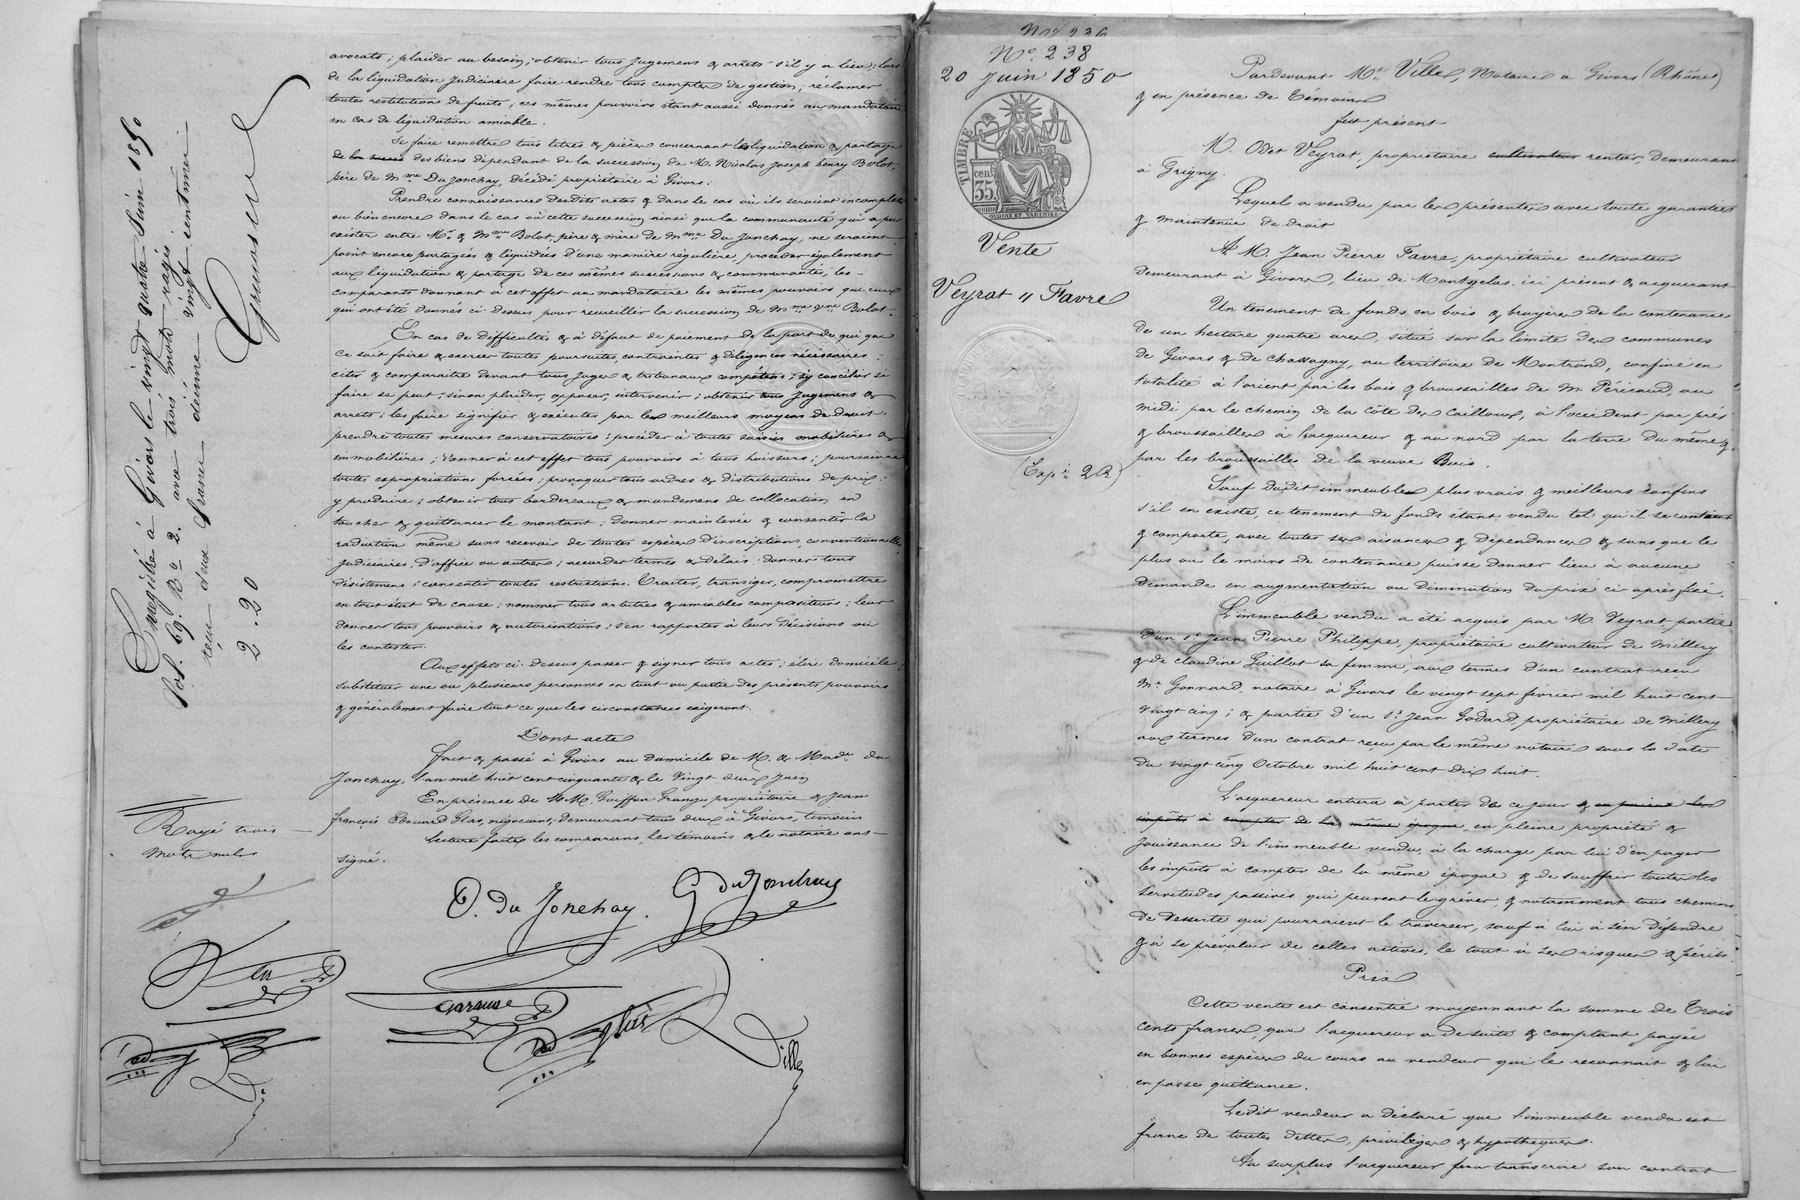 avocats; plaider au besoin; obtenir tous jugemens & arrets s'il y a lieu; lors
de la liquidation judiciaire faire rendre tous comptes de gestion; réclamer
toutes restitutions de fruits; ces mêmes pouvoirs étant aussi donnés au mandataire
en cas de liquidation amiable.
Se faire remettre tous titres & pièces concernant les liquidation & partage
des biens dépendant de la succession de M. Nicolas Joseph henry Bolot,
père de Mme Du Jonchay, décédé propriétaire à Givors.
Prendre connaissance desdits actes & dans le cas où ils seraient incomplets
ou bien encore dans le cas où cette succession ainsi que la communauté qui a pu
exister entre Mr & Mme Bolot, père & mère de Mme Du Jonchay, ne seraient
point encore partagées & liquidées d'une manière régulière, procéder également
aux liquidation & partage de ces mêmes successions & communautés, les
comparants donnant à cet effet au mandataire les mêmes pouvoirs que ceux
qui ont été donnés ci dessus pour recueillir la succession de Mme Vve Bolot.
En cas de difficultés & à défaut de paiement de la part de qui que
ce soit faire & exercer toutes poursuites, contraintes & diligences nécessaires;
citer & comparaitre devant tous juges & tribunaux compétens; s'y concilier si
faire se peut; sinon plaider, opposer, intervenir; obtenir tous jugemens &
arrets; les faire signifier & exécuter par les meilleurs moyens de droit;
prendre toutes mesures conservatoires; procéder à toutes saisies mobilières &
immobilières; donner à cet effet tous pouvoirs à tous huissiers; poursuivre
toutes expropriations forcées; provoquer tous ordres & distributions de prix;
y produire; obtenir tous bordereaux & mandemens de collocation en
toucher & quittancer le montant; donner mainlevée & consentir la
radiation même sans recevoir de toutes espèces d'inscriptions conventionnelles,
judiciaires, d'office ou autres; accorder termes & délais; donner tous
désistemens; consentir toutes restrictions. Traiter, transiger, compromettre
en tout état de cause; nommer tous arbitres & amiables compositeurs; leur
donner tous pouvoirs & autorisations; s'en rapporter à leurs décisions ou
les contester.
Aux effets ci dessus passer & signer tous actes; élire domicile;
substituer une ou plusieurs personnes en tout ou partie des présents pouvoirs
& généralement faire tout ce que les circonstances exigeront.
Dont acte
Fait & passé à Givors au domicile de M. & Made du
Jonchay, l'an mil huit cent cinquante & le Vingt deux Juin
En présence de MM. Goiffon Grange propriétaire & Jean
françois Edouard Glas, négociant, demeurant tous deux à Givors, témoins
lecture faite, les comparans, les témoins & le notaire ont
signé.
Enregistré à Givors le vingt quatre Juin 1850
fol. 69. Ro C. 2. avec trois mots rayés.
reçu deux francs décime vingt centimes
2. 20
Rayé trois
mots nuls
E. du Jonchay. G du Jonchay
Ville
No. 236
No. 238
20 Juin 1850
TIMBRE
35 cen.
Vente
Veyrat à Favre
(Expn. 2 R)
Pardevant Me. Ville, Notaire à Givors (Rhône)
& en présence de témoins
fut présent
M. Odet Veyrat, propriétaire cultivateur rentier, demeurant
à Grigny.
Lequel a vendu par les présentes avec toute garantie
& maintenue de droit
A M. Jean Pierre Favre, propriétaire cultivateur
demeurant à Givors, lieu de Montgelas, ici présent & acquérant
Un tenement de fonds en bois & bruyères de la contenance
de un hectare quatre ares, situé sur la limite des communes
de Givors & de Chassagny, au territoire de Montrond, confiné en
totalité à l'orient par les bois & broussailles de M. Péricaud, au
midi par le chemin de la côte des Cailloux, à l'occident par prés
& broussailles à l'acquéreur & au nord par la terre du même &
par les broussailles de la veuve Bois.
Sauf dudit immeuble plus vrais & meilleurs confins
s'il en existe, ce tenement de fonds étant vendu tel qu'il se contient
& comporte, avec toutes ses aisances & dépendances & sans que le
plus ou le moins de contenance puisse donner lieu à aucune
demande en augmentation ou diminution du prix ci après fixé.
L'immeuble vendu a été acquis par M. Veyrat partie
d'un sr. Jean Pierre Philippe, propriétaire cultivateur de Millery
& de Claudine Guillot sa femme, aux termes d'un contrat reçu
Me Gonnard, notaire à Givors le vingt sept février mil huit cent
vingt cinq; & partie d'un sr. Jean Godard propriétaire de Millery
aux termes d'un contrat reçu par le même notaire sous la date
du vingt cinq Octobre mil huit cent dix huit.
L'acquéreur entrera à partir de ce jour & en paiera les
impots à compter de la même époque, en pleine propriété &
jouissance de l'immeuble vendu, à la charge par lui d'en payer
les impôts à compter de la même époque & de souffrir toutes les
servitudes passives qui peuvent le gréver & notamment tous chemins
de desserte qui pourraient le traverser, sauf à lui à s'en défendre
& à se prévaloir de celles actives, le tout à ses risques & périls.
Prix
Cette vente est consentie moyennant la somme de Trois
cents francs, que l'acquéreur a de suite & comptant payée
en bonnes espèces du cours au vendeur qui le reconnait & lui
en passe quittance.
Ledit vendeur a déclaré que l'immeuble vendu est
franc de toutes dettes, privilèges & hypothèques.
Au surplus l'acquéreur fera transcrire son contrat